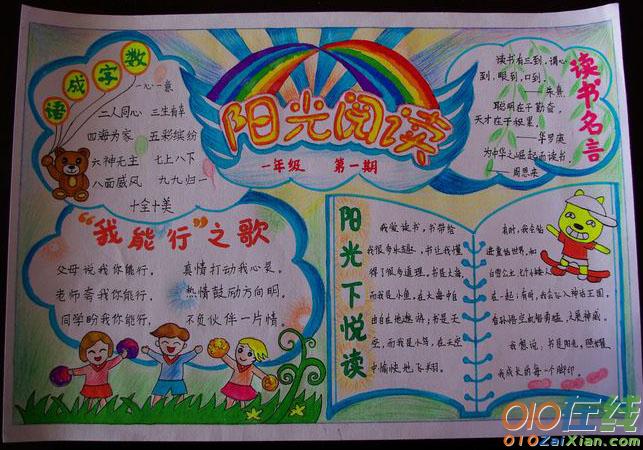 数字成语
一心一意
二人同心 三生有幸
四海为家 五彩缤纷
六神无主 七上八下
八面威风 九九归一
十全十美
阳光阅读
一年级 第一期
读书名言
读书有三到，谓心
到，眼到，口到。
——朱熹
聪明在于勤奋，
天才在于积累。
——华罗庚
为中华之崛起而读书。
——周恩来
“我能行”之歌
父母说我你能行， 真情打动我心灵。
老师夸我你能行， 热情鼓励方向明。
同学盼我你能行， 不负伙伴一片情。
阳光下悦读
我爱读书，书带给
我很多乐趣，书让我懂
得了很多道理。书是大海，
而我是小鱼，在大海中自
由自在地遨游；书是天
空，而我是小鸟，在天空
中愉快地飞翔。
有时，我会钻
进童话世界，和
白雪公主、七个小矮人
在一起；有时，我会飞入神话王国，
我想说，书是阳光，照耀
我成长的每一个脚印。
010在线
010ZaiXian.com